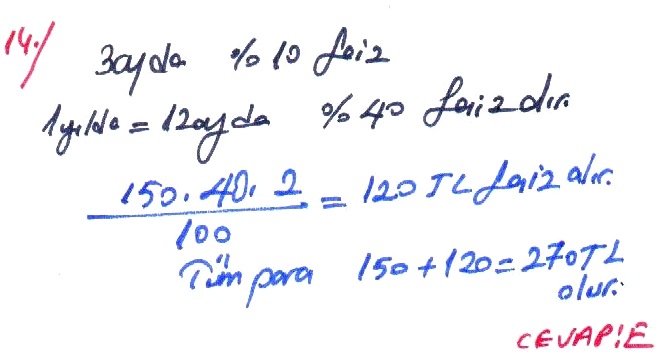 14./ 3ayda %10 faiz
1yılda = 12ayda %40 faizdır.
150.40.2 / 100 = 120 TL faiz alır.
Tüm para 150+120=270TL
olur.
CEVAP:E